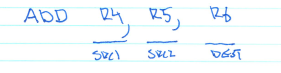 ADD R4, R5, R6
SRC1 SRC2 DEST